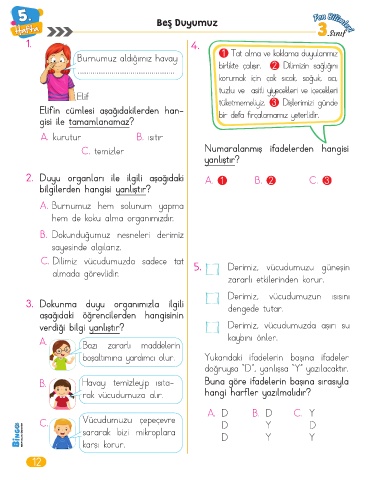 5.
Hafta
Beş Duyumuz
Fen Bilimleri
3. Sınıf
1.
Burnumuz aldığımız havayı
Elif
Elif'in cümlesi aşağıdakilerden han-
gisi ile tamamlanamaz?
A. kurutur
B. ısıtır
C. temizler
2. Duyu organları ile ilgili aşağıdaki
bilgilerden hangisi yanlıştır?
A. Burnumuz hem solunum yapma
hem de koku alma organımızdır.
B. Dokunduğumuz nesneleri derimiz
sayesinde algılarız.
C. Dilimiz vücudumuzda sadece tat
almada görevlidir.
3. Dokunma duyu organımızla ilgili
aşağıdaki öğrencilerden hangisinin
verdiği bilgi yanlıştır?
A.
Bazı zararlı maddelerin
boşaltımına yardımcı olur.
B.
Havayı temizleyip ısıta-
rak vücudumuza alır.
C.
Vücudumuzu çepeçevre
sararak bizi mikroplara
karşı korur.
4.
1 Tat alma ve koklama duyularımız
birlikte çalışır. 2 Dilimizin sağlığını
korumak için çok sıcak, soğuk, acı,
tuzlu ve asitli yiyecekleri ve içecekleri
tüketmemeliyiz. 3 Dişlerimizi günde
bir defa fırçalamamız yeterlidir.
Numaralanmış ifadelerden hangisi
yanlıştır?
A. 1
B. 2
C. 3
5.
Derimiz, vücudumuzu güneşin
zararlı etkilerinden korur.
Derimiz, vücudumuzun ısısını
dengede tutar.
Derimiz, vücudumuzda aşırı su
kaybını önler.
Yukarıdaki ifadelerin başına ifadeler
doğruysa "D", yanlışsa "Y" yazılacaktır.
Buna göre ifadelerin başına sırasıyla
hangi harfler yazılmalıdır?
A. D B. D C. Y
D Y D
D Y Y
BİNGO
12